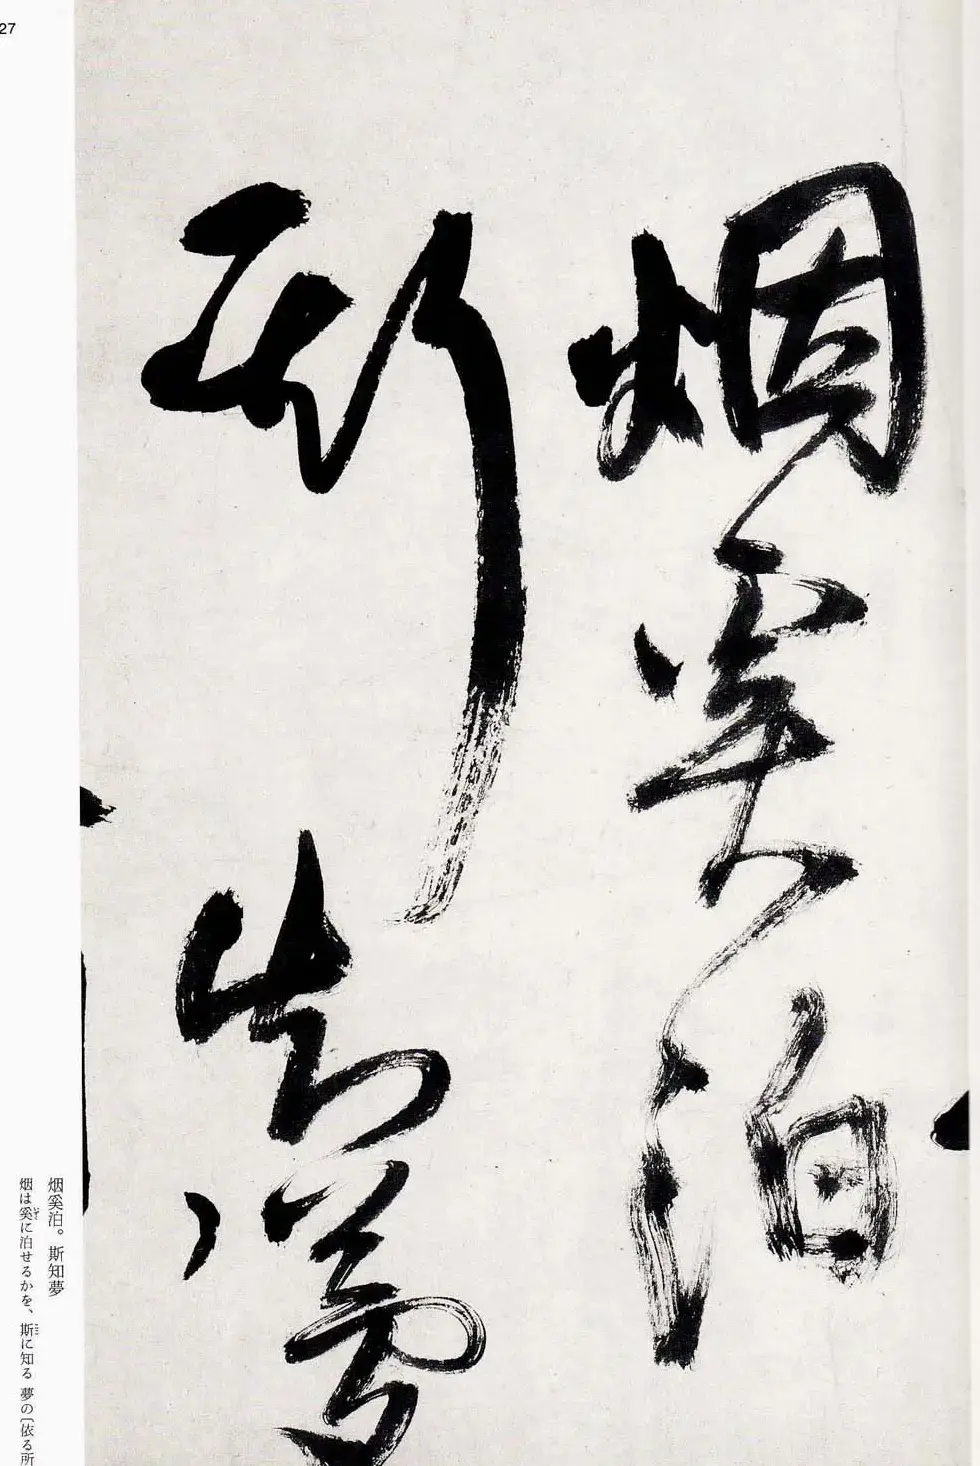 27
烟奚泊
斯知夢
烟奚泊。斯知夢
烟は奚に泊せるかを、斯に知る 夢の〔依る所